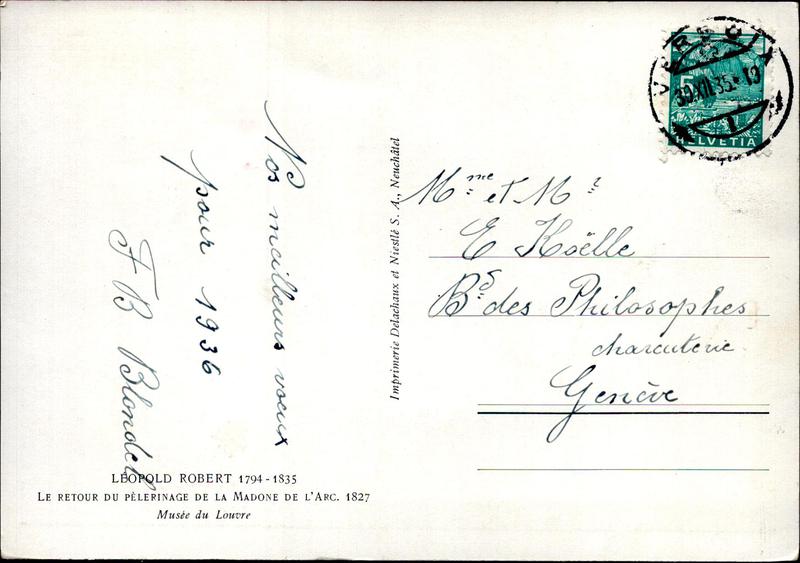 Nos meilleurs voeux
pour 1936
F B Blondel
LÉOPOLD ROBERT 1794 - 1835
LE RETOUR DU PÈLERINAGE DE LA MADONE DE L'ARC. 1827
Musée du Louvre
Imprimerie Delachaux et Niestlé S. A., Neuchâtel
VERSOIX
30.XII.35. - 19
1
5
HELVETIA
Mme et Mr
E Koëlle
Bd des Philosophes
charcuterie
Genève